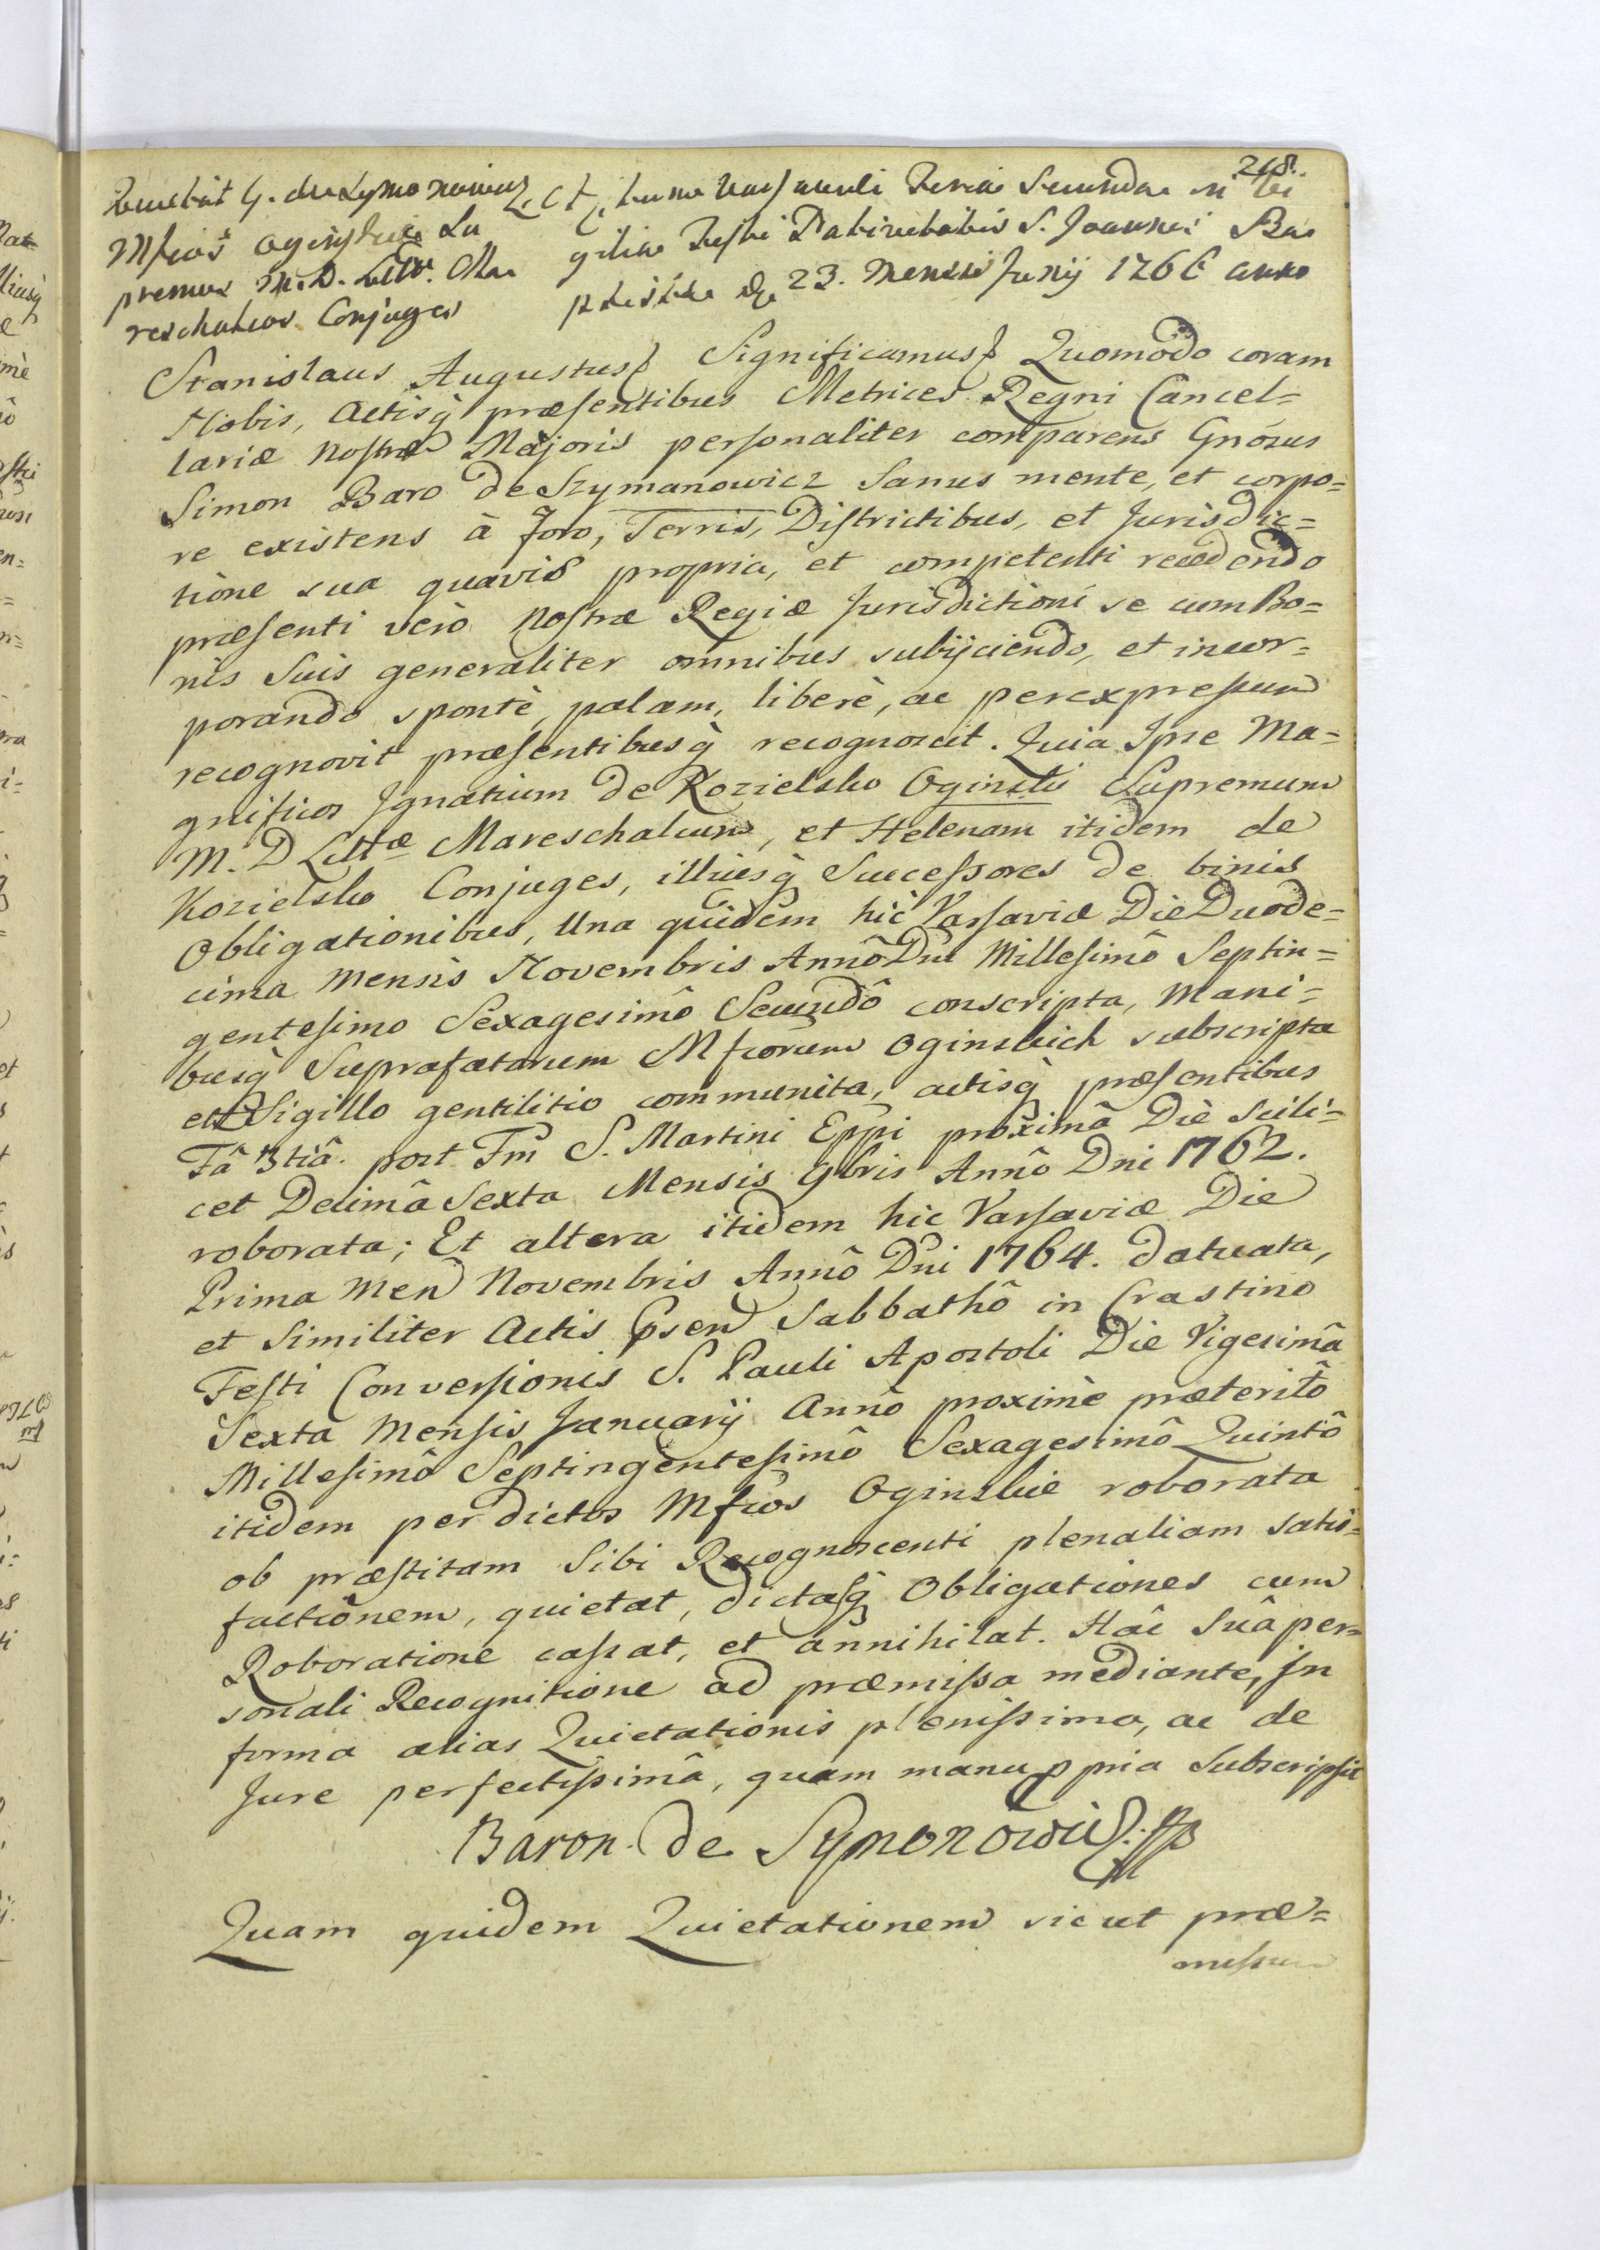 218.
Quietat G. de Szymanowicz
Mficos Oginskie Su
premus M. D. Litt. Ma
reschalcos Conjuges
Actum Varsaviæ Feria Secunda in Vi
gilia Festi Nativitatis S. Joannis Bap
tistæ die 23. Mensis Junij 1766 anno
Stanislaus Augustus Significamus Quomodo coram
Nobis, Actisq̀ præsentibus Metrices Regni Cancel=
lariæ Nostræ Majoris personaliter comparens Gnosus
Simon Baro de Szymanowicz Sanus mente, et corpo=
re existens à Foro, Terris, Districtibus, et Jurisdic=
tione sua quavis propria, et competenti recedendo
præsenti verò Nostræ Regiæ Jurisdictioni se cum Bo=
nis Suis generaliter omnibus subijciendo, et incor=
porando spontè, palam, liberè, ac per expressum
recognovit præsentibusq̀ recognoscit. Quia Ipse Ma=
gnificos Ignatium de Kozielsko Oginski Supremum
M. D Littæ Mareschalcum, et Helenam itidem de
Kozielsko Conjuges, illiusq̀ Successores de binis
Obligationibus, Una quidem hic Varsaviæ Die Duode=
cima mensis Novembris Annô Dni Millesimô Septin=
gentesimo Sexagesimô Secundô conscripta, Mani=
busq̀ Suprafatorum Mficorum Oginskich subscripta
et Sigillo gentilitio communita, actisq̀ præsentibus
Fâ 3tiâ post Fm S. Martini Eppi proximâ Diè Scili=
cet Decimâ Sexta Mensis 9bris Annô Dni 1762.
roborata; Et altera itidem hic Varsaviæ Die
Prima Men Novembris Annô Dni 1764. datuata,
et Similiter Actis Psen Sabbathô in Crastino
Festi Conversionis S. Pauli Apostoli Die Vigesimâ
Sexta Mensis Januarij Annô proximè præteritô
Millesimô Septingentesimô Sexagesimô Quintô
itidem per dictos Mficos Oginskie roborata
ob præstitam Sibi Recognoscenti plenaliam satis=
factionem, quietat, dictasq̀ Obligationes cum
Roboratione cassat, et annihilat. Hâc Suâ per=
sonali Recognitione ad præmissa mediante, In
forma alias Quietationis plenissima, ac de
Jure perfectissimâ, quam manu ppria Subscripsit
Baron de Symonowicz
Quam quidem Quietationem sicut præ=
missum